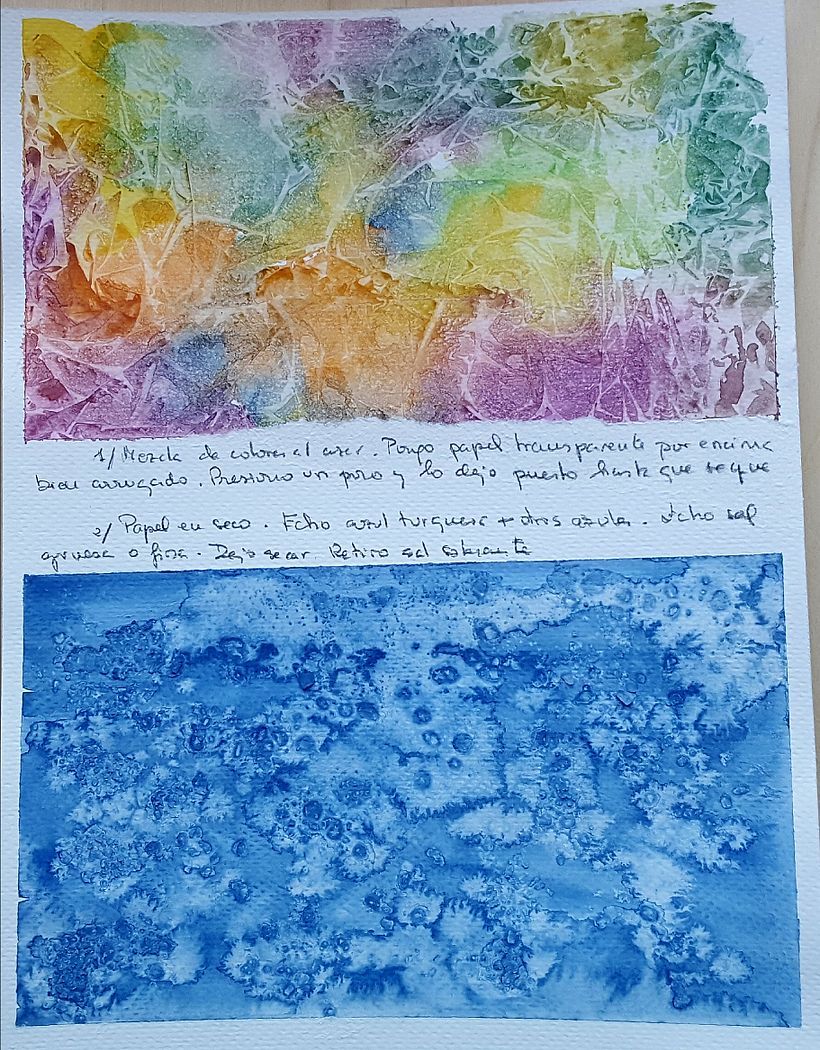 1/ Mezcla de colores al azar. Pongo papel transparente por encima
bien arrugado. Presiono un poco y lo dejo puesto hasta que seque
2/ Papel en seco. Echo azul turquesa + otros azules. Echo sal
gruesa o fina. Dejo secar. Retiro sal sobrante